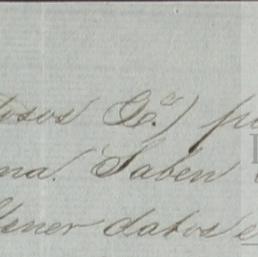 tosos &ª) po
na. Saben
tener datos e